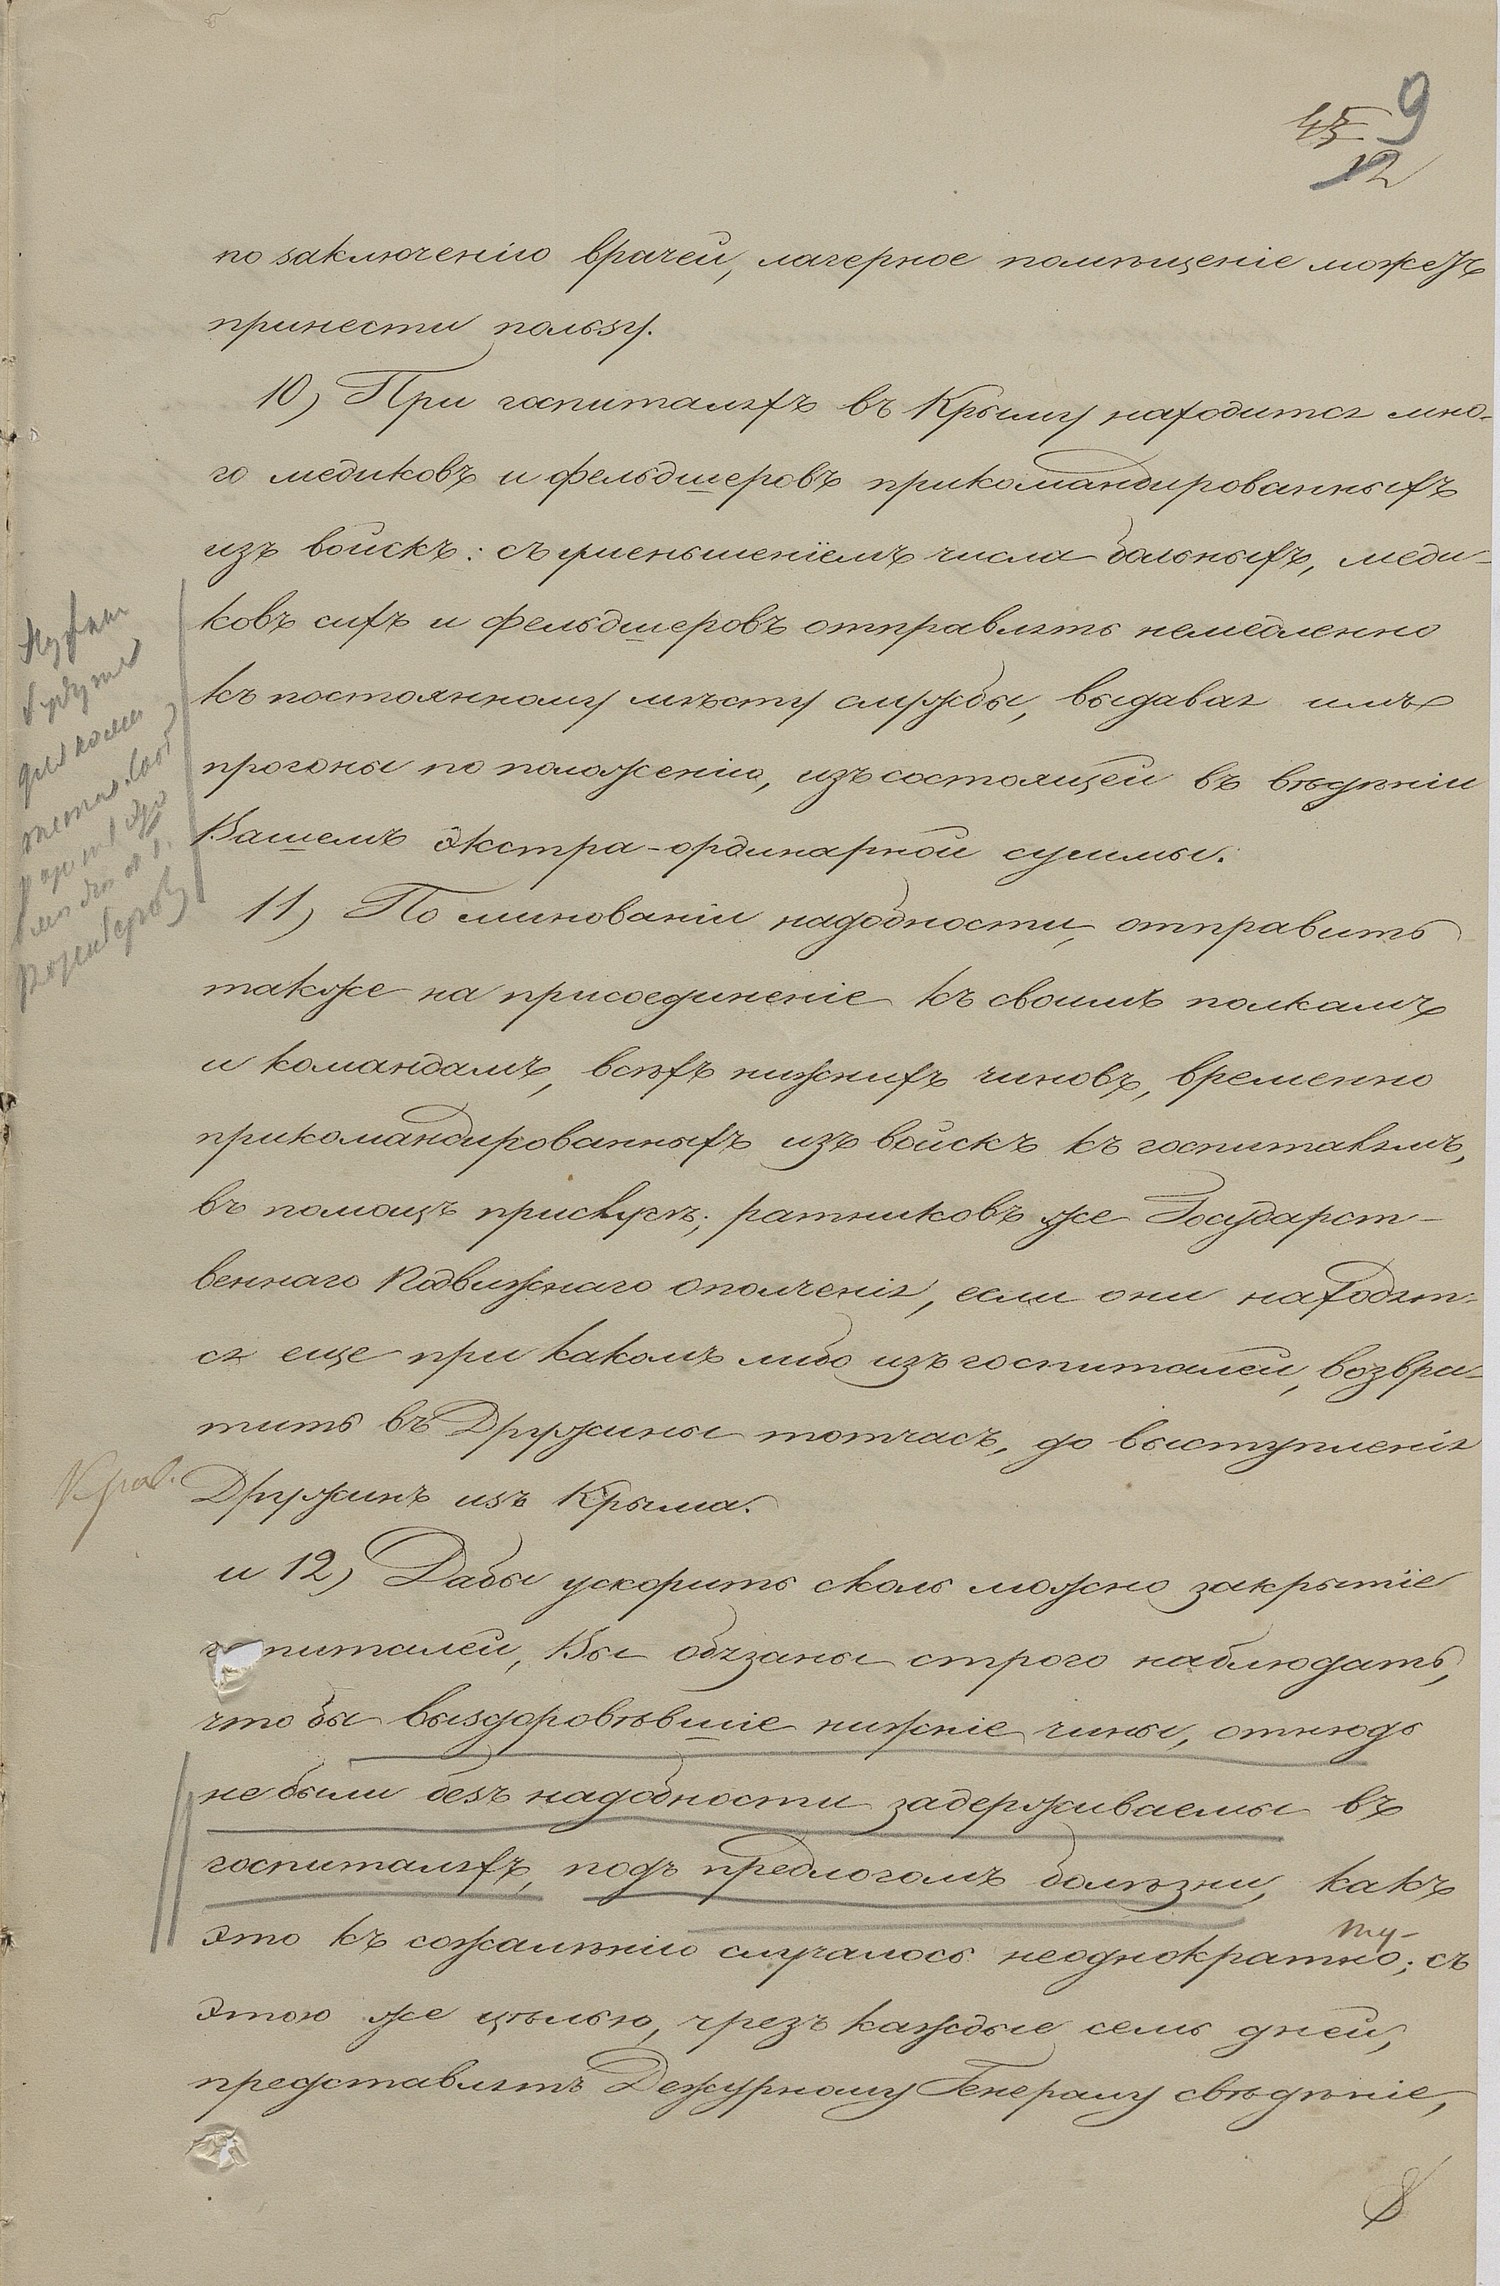 9
12
по заключенію врачей, лагерное помѣщеніе можетъ
принести пользу.
10) При госпиталяхъ въ Крыму находится мно-
го медиковъ и фельдшеровъ прикомандированныхъ
изъ войскъ: съ уменьшеніемъ числа больныхъ, меди-
ковъ сихъ и фельдшеровъ отправлять немедленно
къ постоянному мѣсту службы, выдавая имъ
прогоны по положенію, изъ состоящей въ вѣдѣніи
Вашемъ экстра-ординарной суммы.
11) По минованіи надобности, отправить
также на присоединеніе къ своимъ полкамъ
и командамъ, всѣхъ нижнихъ чиновъ, временно
прикомандированныхъ изъ войскъ къ госпиталямъ,
въ помощь прислугѣ; ратниковъ же Государст-
веннаго Подвижнаго ополченія, если они находят-
ся еще при какомъ либо изъ госпиталей, возвра-
тить въ Дружины тотчасъ, до выступленія
Дружинъ изъ Крыма.
и 12) Дабы ускорить сколь можно закрытіе
г питалей, Вы обязаны строго наблюдать,
что бы выздоровѣвшіе нижніе чины, отнюдь
не были безъ надобности задерживаемы въ
госпиталяхъ, подъ предлогомъ болѣзни, какъ
это къ сожалѣнію случалось неоднократно; съ
этою же цѣлью, чрезъ каждые семь дней,
представлять Дежурному Генералу свѣдѣніе,